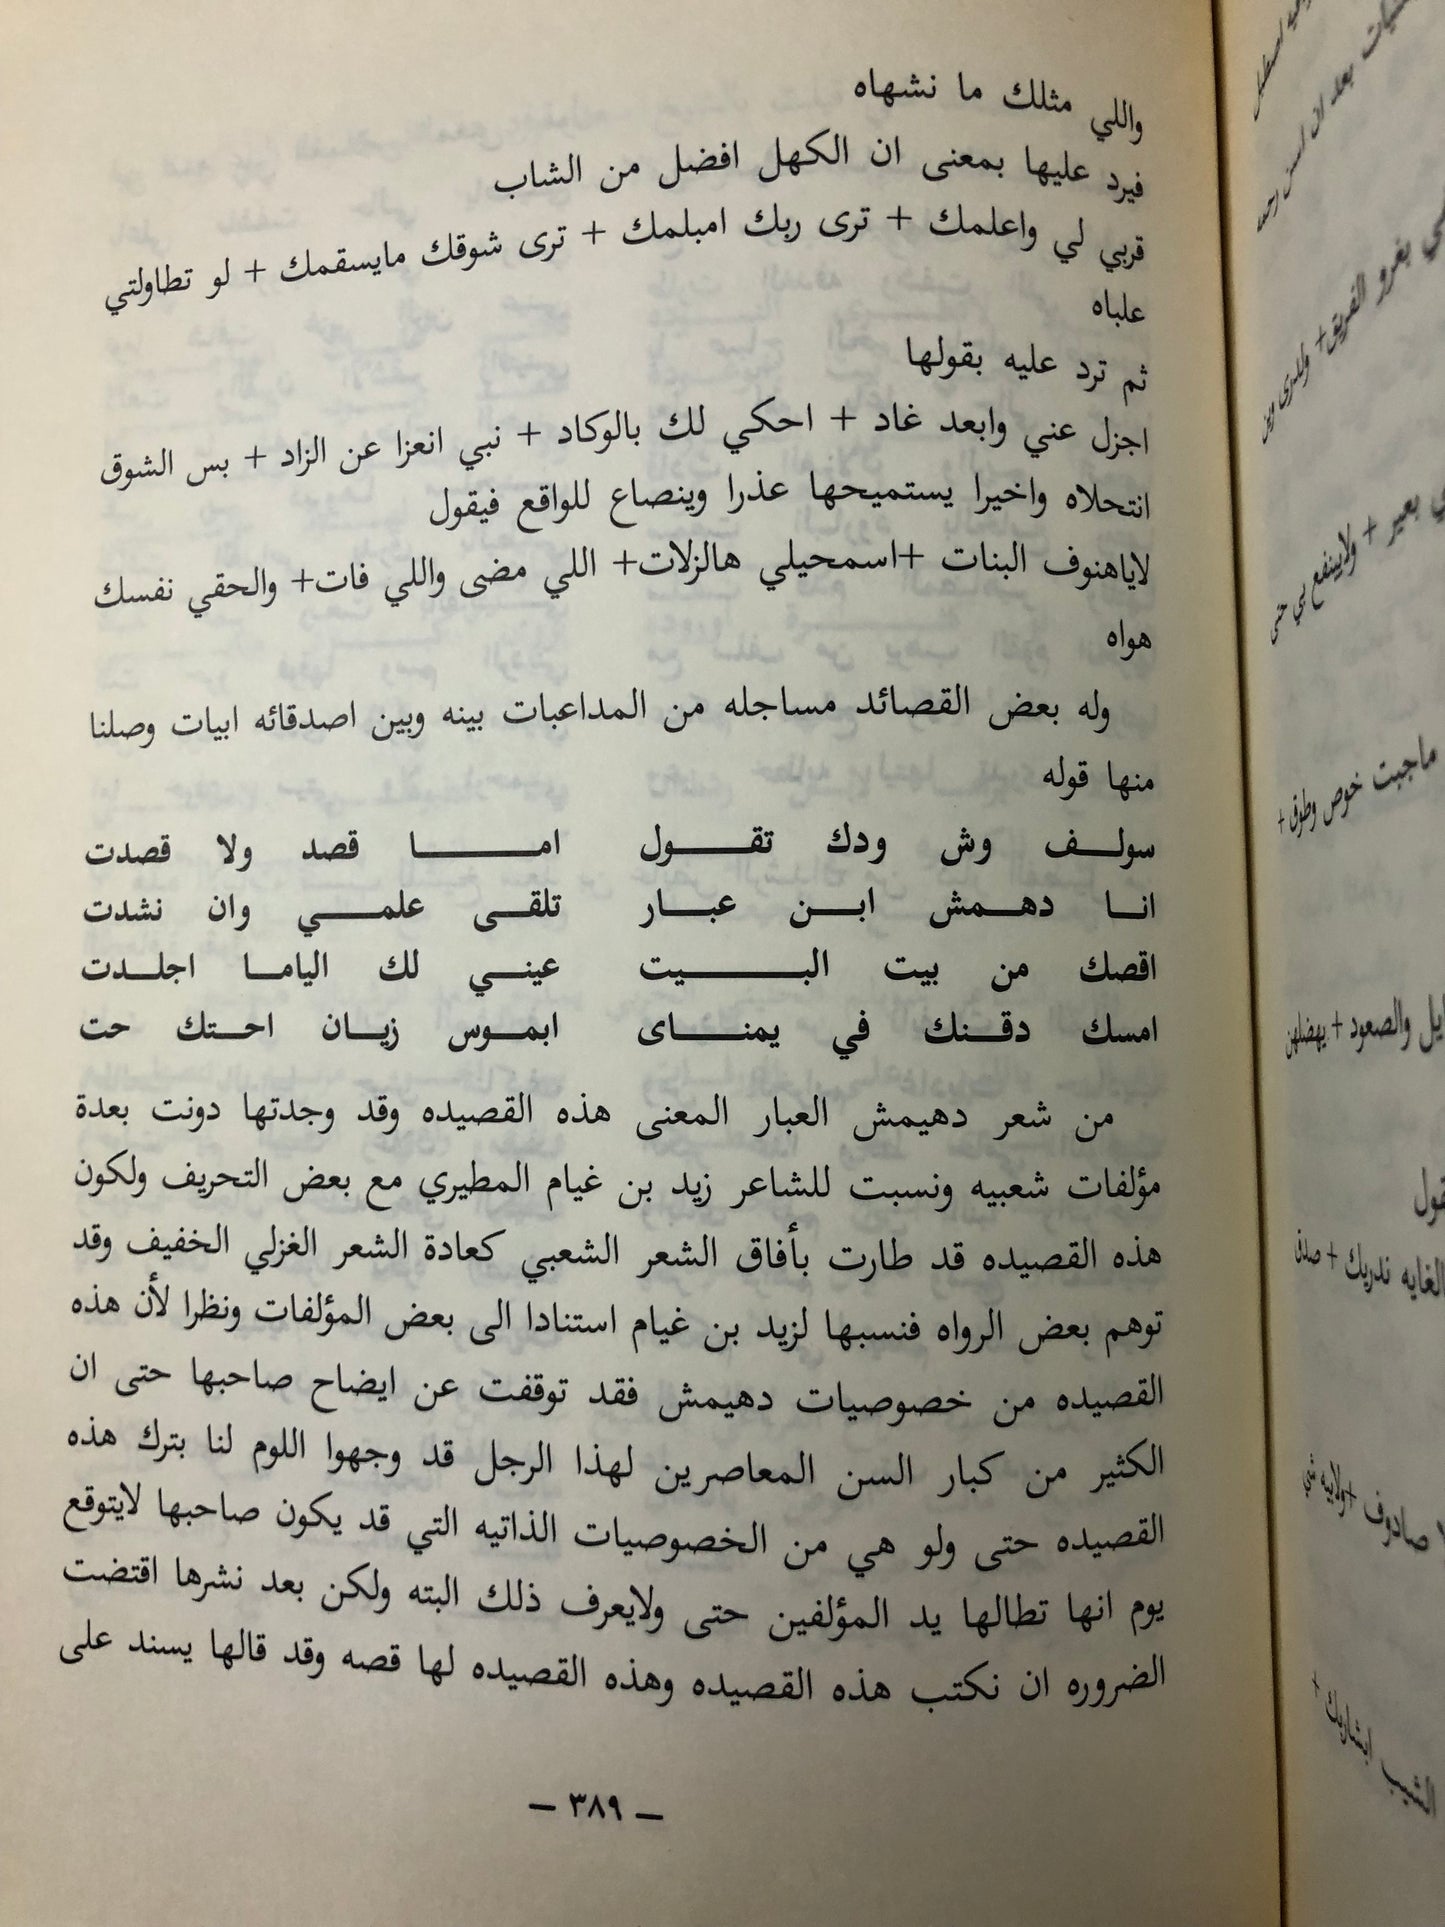 واللي مثلك ما نشهاه
فيرد عليها بمعنى ان الكهل افضل من الشاب
قربي لي واعلمك + ترى ربك امبلمك + ترى شوقك مايسقمك + لو تطاولتي
علباه
ثم ترد عليه بقولها
اجزل عني وابعد غاد + احكي لك بالوكاد + نبي انعزا عن الزاد + بس الشوق
انتحلاه واخيرا يستميحها عذرا وينصاع للواقع فيقول
لاياهنوف البنات +اسمحيلي هالزلات+ اللي مضى واللي فات+ والحقي نفسك
هواه
وله بعض القصائد مساجله من المداعبات بينه وبين اصدقائه ابيات وصلنا
منها قوله
سولف وش ودك تقول اما قصد ولا قصدت
انا دهمش ابن عبار تلقى علمي وان نشدت
اقصك من بيت البيت عيني لك الياما اجلدت
امسك دقنك في يمناى ابموس زيان احتك حت
من شعر دهيمش العبار المعنى هذه القصيده وقد وجدتها دونت بعدة
مؤلفات شعبيه ونسبت للشاعر زيد بن غيام المطيري مع بعض التحريف ولكون
هذه القصيده قد طارت بأفاق الشعر الشعبي كعادة الشعر الغزلي الخفيف وقد
توهم بعض الرواه فنسبها لزيد بن غيام استنادا الى بعض المؤلفات ونظرا لأن هذه
القصيده من خصوصيات دهيمش فقد توقفت عن ايضاح صاحبها حتى ان
الكثير من كبار السن المعاصرين لهذا الرجل قد وجهوا اللوم لنا بترك هذه
القصيده حتى ولو هي من الخصوصيات الذاتيه التي قد يكون صاحبها لايتوقع
يوم انها تطالها يد المؤلفين حتى ولايعرف ذلك البته ولكن بعد نشرها اقتضت
الضروره ان نكتب هذه القصيده وهذه القصيده لها قصه وقد قالها يسند على
— ٣٨٩ —
بغرو الفريق+
بعير + ولاينفع بي حتى
ماجبت خوص وطوق +
والصعود + يهضلهن
الغايه ندريك + صدق
صادوف +ولابيه شي
الشيب ابشاربك +